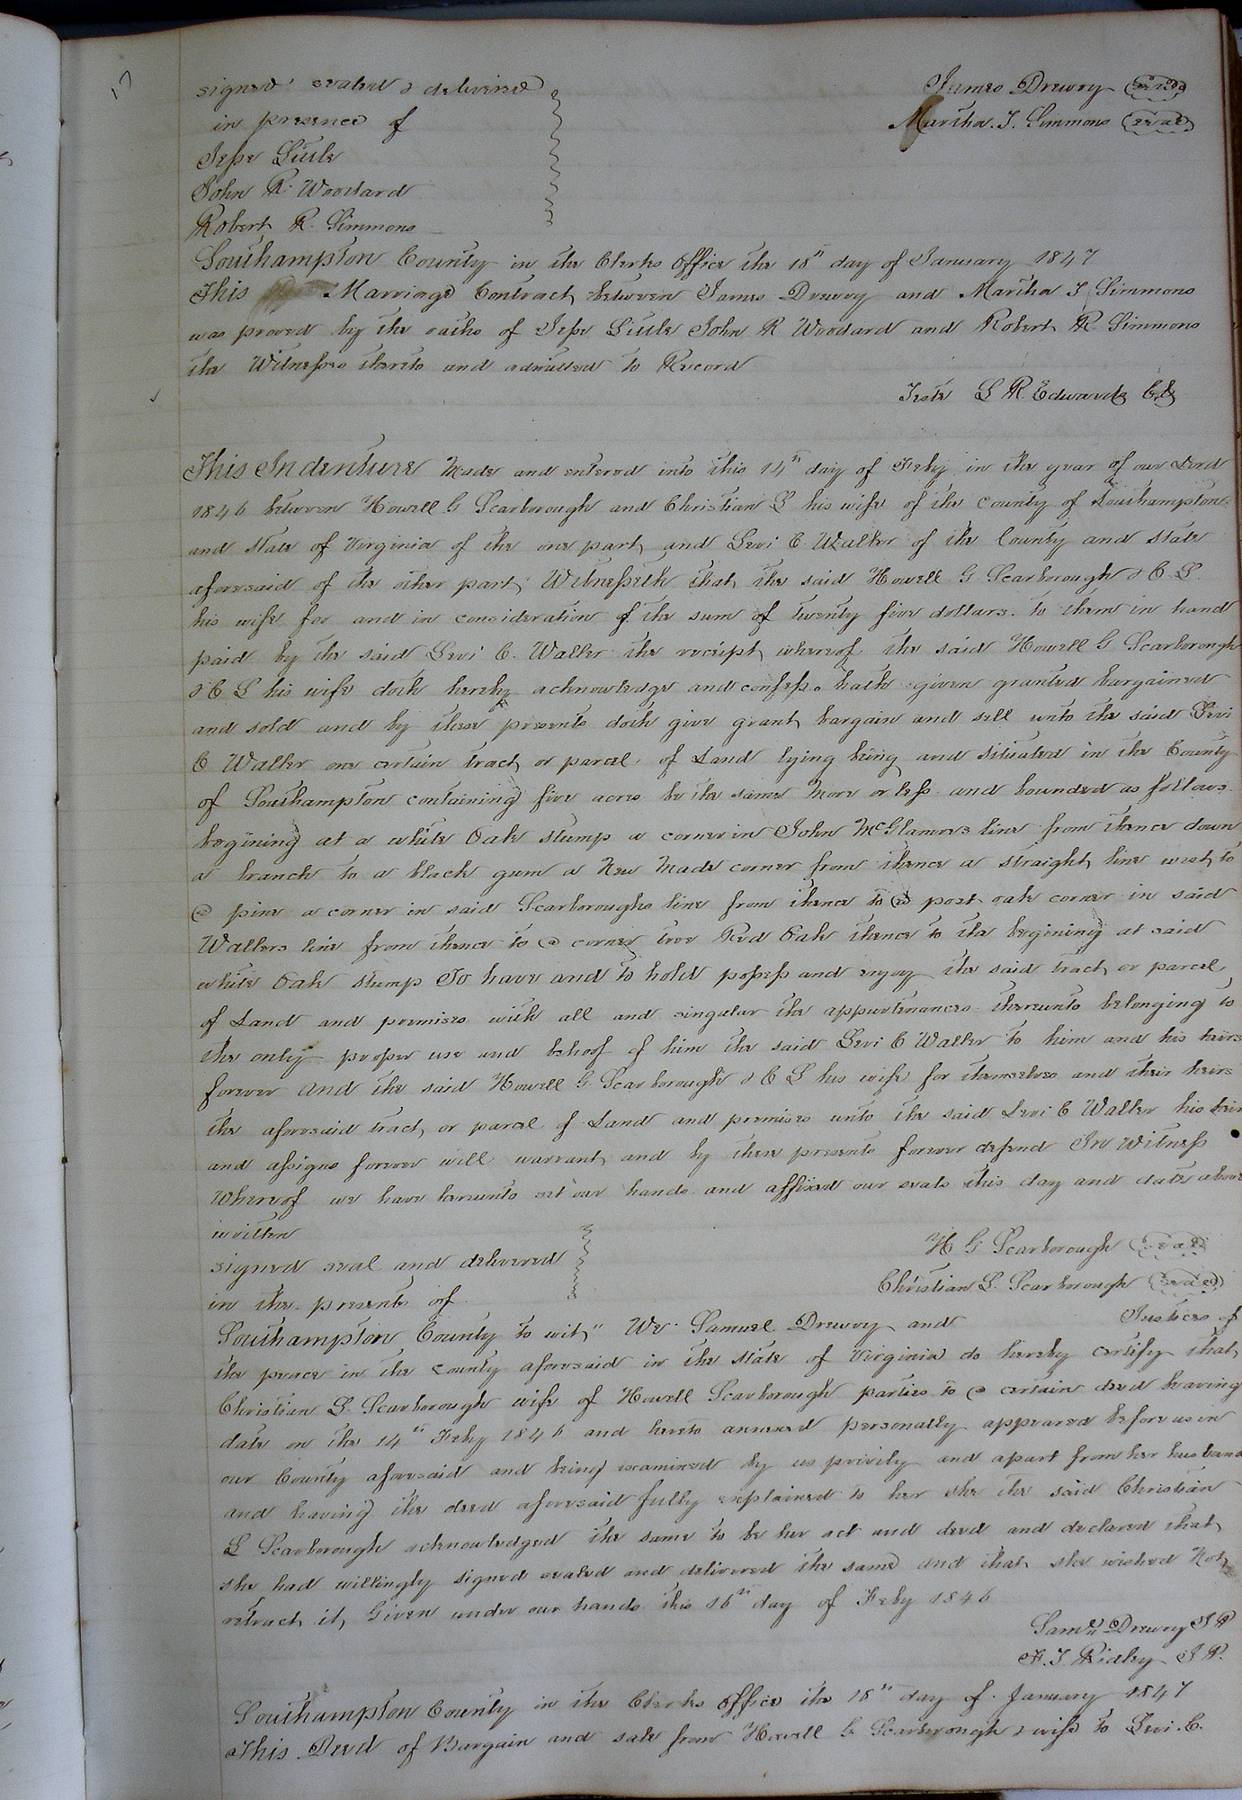 17
signed sealed & delivered James Drewry (seal)
in presence of Martha. T. Simmons (seal)
Jesse Little
John R. Woodard
Robert R. Simmons
Southampton County in the Clerks Office the 18th day of January 1847
This Marriage Contract between James Drewry and Martha T Simmons
was proved by the oaths of Jesse Little John R Woodard and Robert R Simmons
the Witnesses thereto and admitted to Record
Teste L R. Edwards Clk
This Indenture Made and entered into this 14th day of Feby in the year of our Lord
1846 between Howell G Scarborough and Christian L his wife of the county of Southampton
and State of Virginia of the one part, and Levi C. Waller of the County and state
aforesaid of the other part; Witnesseth that the said Howell G Scarborough & C L
his wife for and in consideration of the sum of twenty five dollars. to them in hand
paid by the said Levi C. Waller the receipt whereof the said Howell G Scarborough
& C L his wife doth hereby acknowledge and confess. hath given granted bargained
and sold and by these presents doth give grant, bargain and sell unto the said Levi
C Waller one certain tract or parcel of Land lying being and situated in the County
of Southampton containing five acres be the same More or less and bounded as follows.
begining at a white Oak stump a corner in John McGlamers line from thence down
a branch to a black gum a New Made corner from thence a straight line west to
a pine a corner in said Scarboroughs line from thence to a post oak corner in said
Wallers line from thence to a corner tree Red Oak thence to the begining at said
white Oak stump To have and to hold possess and enjoy the said tract or parcel
of Land and premises with all and singular the appurtenances thereunto belonging to
the only proper use and behoof of him the said Levi C Waller to him and his heirs
forever and the said Howell G Scarborough & C L his wife for themselves and their heirs
the aforesaid tract, or parcel of Land and premises unto the said Levi C Waller his heirs
and assigns forever will warrant, and by these presents forever defend In Witness
Whereof we have hereunto set our hands and affixed our seals this day and date above
written
H G Scarborough (seal)
signed seal and delivered Christian L. Scarborough (seal)
in the presents of
Southampton County to wit," We Samuel Drewry and Justices of
the peace in the county aforesaid in the State of Virginia do hereby certify that,
Christian L Scarborough wife of Howell Scarborough parties to a certain deed bearing
date on the 14th Feby 1846 and hereto annexed personally appeared before us in
our County aforesaid and being examined by us privily and apart from her husband
and having the deed aforesaid fully explained to her she the said Christian
L Scarborough acknowledged the same to be her act and deed and declared that,
she had willingly signed sealed and delivered the same and that she wished Not
retract it, Given under our hands this 16th day of Feby 1846
Samll Drewry J P
F. T. Ridley J P.
Southampton County in the Clerks Office the 18th day of January 1847
This Deed of Bargain and sale from Howell G Scarborough & wife to Levi. C.